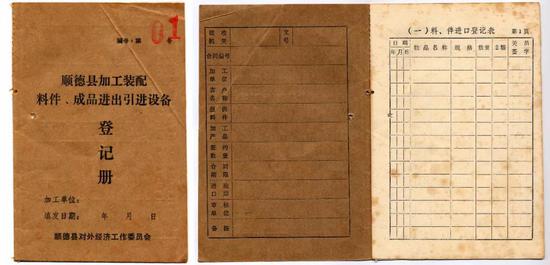 编号:第 01 号
顺德县加工装配
料件、成品进出引进设备
登
记
册
加工单位:
填发日期: 年 月 日
顺德县对外经济工作委员会
批准机关
文号
合同编号
加工单位
客户名称
产品
签约
合同期限
进口
备 注
(一)料、件进口登记表 第1页
日期 料品名称 规格 数量 金额 关员签字
年 月 日